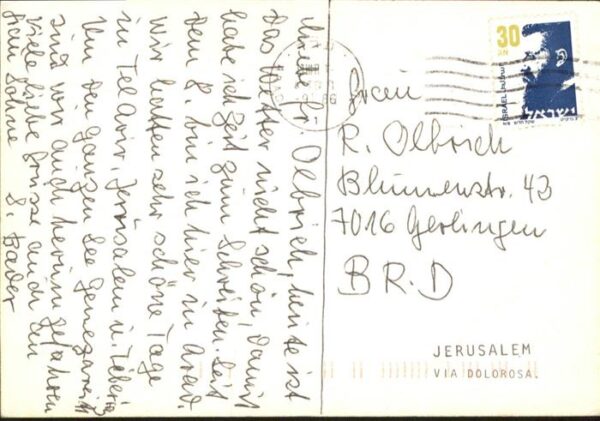 Meine Fr. Olbrich, heute ist
das Wetter nicht schön, damit
habe ich Zeit zum Schreiben. Seit
dem 8. bin ich hier in Arad.
Wir hatten sehr schöne Tage
in Tel Aviv, Jerusalem u. Tiberias
Um den ganzen See Genezareth
sind wir auch herum gefahren
Viele liebe Grüsse auch an
Ihren Sohne
S. Bader
30
ISRAEL
ישראל
Frau
R. Olbrich
Blumenstr. 43
7016 Gerlingen
BRD
JERUSALEM
VIA DOLOROSA.